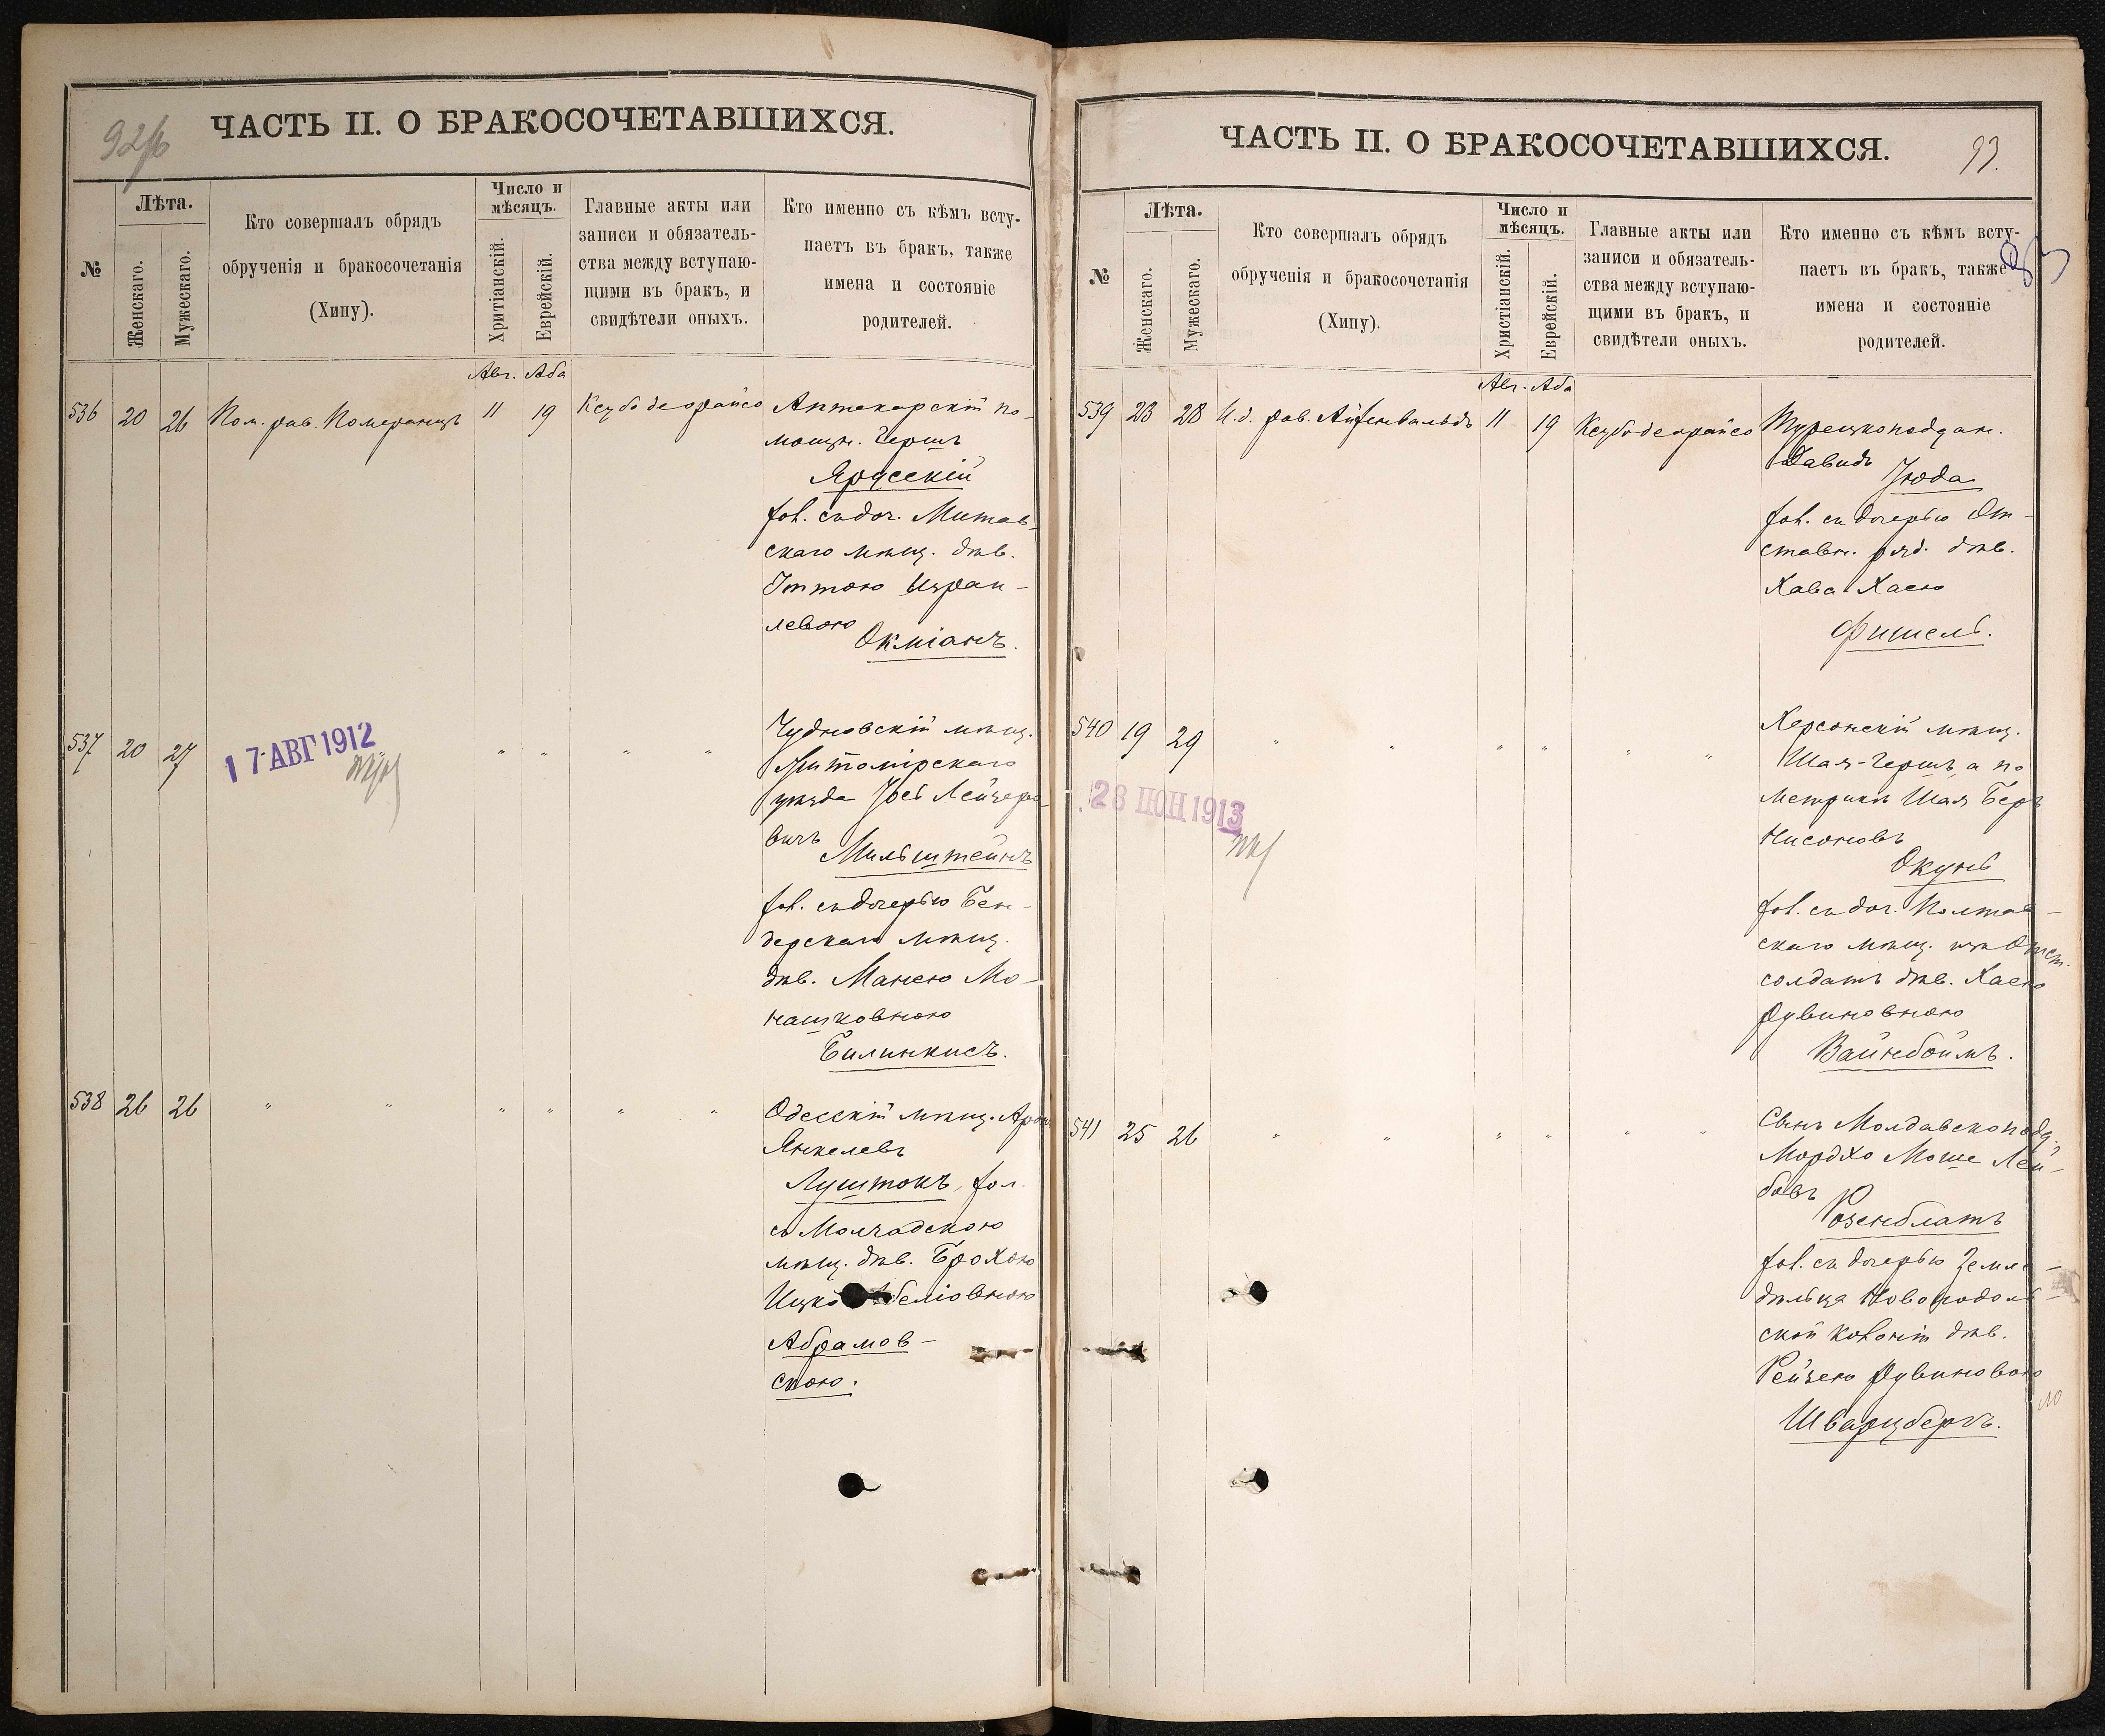 92
ЧАСТЬ II. О БРАКОСОЧЕТАВШИХСЯ.
№
Лѣта.
Женскаго.
Мужескаго.
Кто совершалъ обрядъ
обрученія и бракосочетанія
(Хипу).
Число и
мѣсяцъ.
Хритіанскій.
Еврейскій.
Главные акты или
записи и обязатель-
ства между вступаю-
щими въ бракъ, и
свидѣтели оныхъ.
Кто именно съ кѣмъ всту-
паетъ въ бракъ, также
имена и состояніе
родителей.
Авг. Аба
536 20 26 Пом. рав. Померанцъ 11 19 Ксубо деорайсо
Аптекарскій по-
мощн. Гершъ
Ярусскій
хол. съ доч. Митав-
скаго мѣщ. дѣв.
Иттою Израи-
левою
Окміанъ.
537 20 27 " " " "
17 АВГ 1912
Чудновскій мѣщ.
Житомірскаго
уѣзда Іось Лейзеро-
вичъ
Мильштейнъ
хол. съ дочерью Бен-
дерскаго мѣщ.
дѣв. Манею Мо-
нашковною
Билинкисъ.
538 26 26 " " " " " "
Одесскій мѣщ. Аронъ
Янкелевъ
Луштокъ, хол.
съ Молчадскою
мѣщ. дѣв. Брохою
Ицко
Абрамов-
скою.
ЧАСТЬ II. О БРАКОСОЧЕТАВШИХСЯ.
93.
93
№
Лѣта.
Женскаго.
Мужескаго.
Кто совершалъ обрядъ
обрученія и бракосочетанія
(Хипу).
Число и
мѣсяцъ.
Христіанскій.
Еврейскій.
Главные акты или
записи и обязатель-
ства между вступаю-
щими въ бракъ, и
свидѣтели оныхъ.
Кто именно съ кѣмъ всту-
паетъ въ бракъ, также
имена и состояніе
родителей.
Авг. Аба
539 23 28 И.д. рав. Айзенвальдъ 11 19 Ксубо деорайсо
Турецкоподдан.
Давидъ
Іюда
хол. съ дочерью От-
ставн. ряд. дѣв.
Хава Хаею
Фишель.
540 19 29 " " " " " "
28 ІЮН 1913
Херсонскій мѣщ.
Шая-Гершъ, а по
метрикѣ Шая Беръ
Нисоновъ
Окунь
хол. съ доч. Полтав-
скаго мѣщ. изъ Отст.
солдатъ дѣв. Хаею
Рувиновною
Вайнбоймъ.
541 25 26 " " " " " "
Сынъ Молдавскопод.
Мордхо Моше Лей-
бовъ
Розенблатъ
хол. съ дочерью Земле-
дѣльца Новополь-
ской колоніи дѣв.
Рейзею Рувиновою
Шварцбергъ.